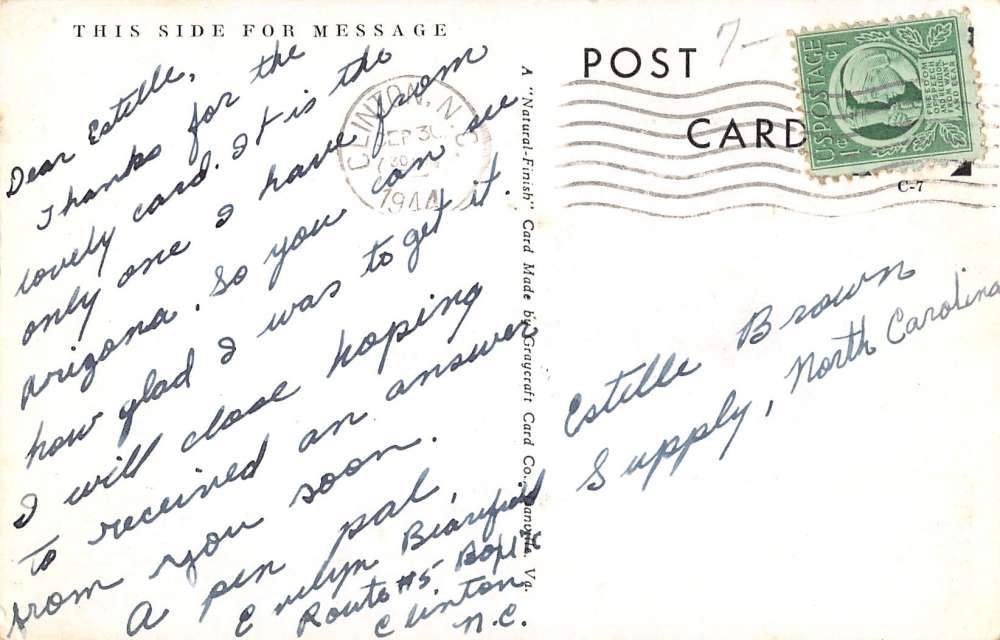 THIS SIDE FOR MESSAGE
Dear Estelle,
Thanks for the
lovely card. It is the
only one I have from
Arizona. So you can see
how glad I was to get it.
I will close hoping
to received an answer
from you soon.
A pen pal,
Evelyn
Route #5, Box
Clinton
N.C.
CLINTON, N.C.
SEP 30
1944
A "Natural-Finish" Card Made by Graycraft Card Co., Danville, Va.
POST
CARD
7-
U.S. POSTAGE
1¢ 1¢
FREEDOM
OF SPEECH
AND RELIGION,
FROM WANT
AND FEAR
C-7
Estelle Brown
Supply, North Carolina